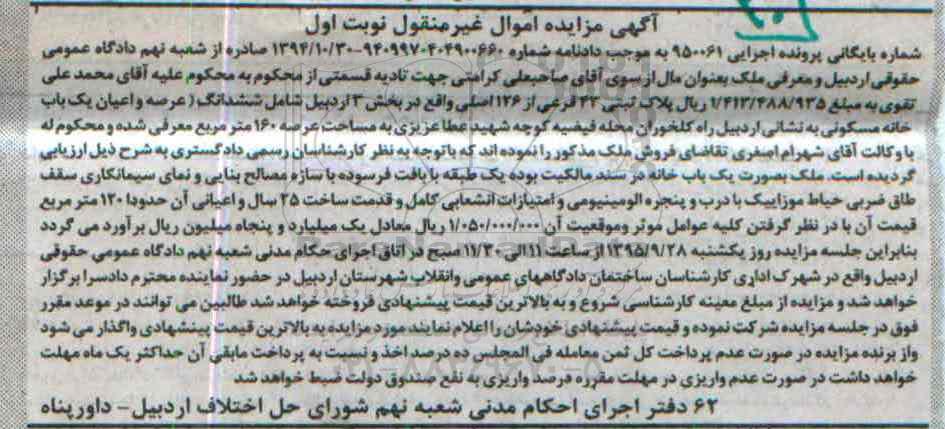 آگهی مزایده اموال غیرمنقول نوبت اول
شماره بایگانی پرونده اجرایی ۹۵۰۰۶۱ به موجب دادنامه شماره ۹۴۰۹۹۷۰۴۰۴۹۰۰۶۶۰-۱۳۹۴/۱۰/۳۰ صادره از شعبه نهم دادگاه عمومی
حقوقی اردبیل و معرفی ملک بعنوان مال از سوی آقای صاحبعلی کرامتی جهت تادیه قسمتی از محکوم به محکوم علیه آقای محمد علی
تقوی به مبلغ ۱/۴۱۲/۴۸۸/۹۳۵ ریال پلاک ثبتی ۳۲ فرعی از ۱۲۶ اصلی واقع در بخش ۳ اردبیل شامل ششدانگ ( عرصه و اعیان یک باب
خانه مسکونی به نشانی اردبیل راه کلخوران محله فیضیه کوچه شهید عطا عزیزی به مساحت عرصه ۱۶۰ متر مربع معرفی شده و محکوم له
با وکالت آقای شهرام اصغری تقاضای فروش ملک مذکور را نموده اند که باتوجه به نظر کارشناسان رسمی دادگستری به شرح ذیل ارزیابی
گردیده است. ملک بصورت یک باب خانه در سند مالکیت بوده یک طبقه با بافت فرسوده با سازه مصالح بنایی و نمای سیمانکاری سقف
طاق ضربی حیاط موزاییک با درب و پنجره الومینیومی و امتیازات انشعابی کامل و قدمت ساخت ۲۵ سال و اعیانی آن حدودا ۱۲۰ متر مربع
قیمت آن با در نظر گرفتن کلیه عوامل موثر وموقعیت آن ۱/۰۵۰/۰۰۰/۰۰۰ ریال معادل یک میلیارد و پنجاه میلیون ریال بر آورد می گردد
بنابراین جلسه مزایده روز یکشنبه ۱۳۹۵/۹/۲۸ از ساعت ۱۱ الی ۱۱/۳۰ صبح در اتاق اجرای حکام مدنی شعبه نهم دادگاه عمومی حقوقی
اردبیل واقع در شهرک اداری کارشناسان ساختمان دادگاههای عمومی وانقلاب شهرستان اردبیل در حضور نماینده محترم دادسرا برگزار
خواهد شد و مزایده از مبلغ معینه کارشناسی شروع و به بالاترین قیمت پیشنهادی فروخته خواهد شد طالبین می توانند در موعد مقرر
فوق در جلسه مزایده شرکت نموده و قیمت پیشنهادی خودشان را اعلام نمایند مورد مزایده به بالاترین قیمت پیشنهادی واگذار می شود
واز برنده مزایده در صورت عدم پرداخت کل ثمن معامله فی المجلس ده درصد اخذ و نسبت به پرداخت مابقی آن حداکثر یک ماه مهلت
خواهد داشت در صورت عدم واریزی در مهلت مقرره درصد واریزی به نفع صندوق دولت ضبط خواهد شد
۶۲ دفتر اجرای احکام مدنی شعبه نهم شورای حل اختلاف اردبیل- داورپناه